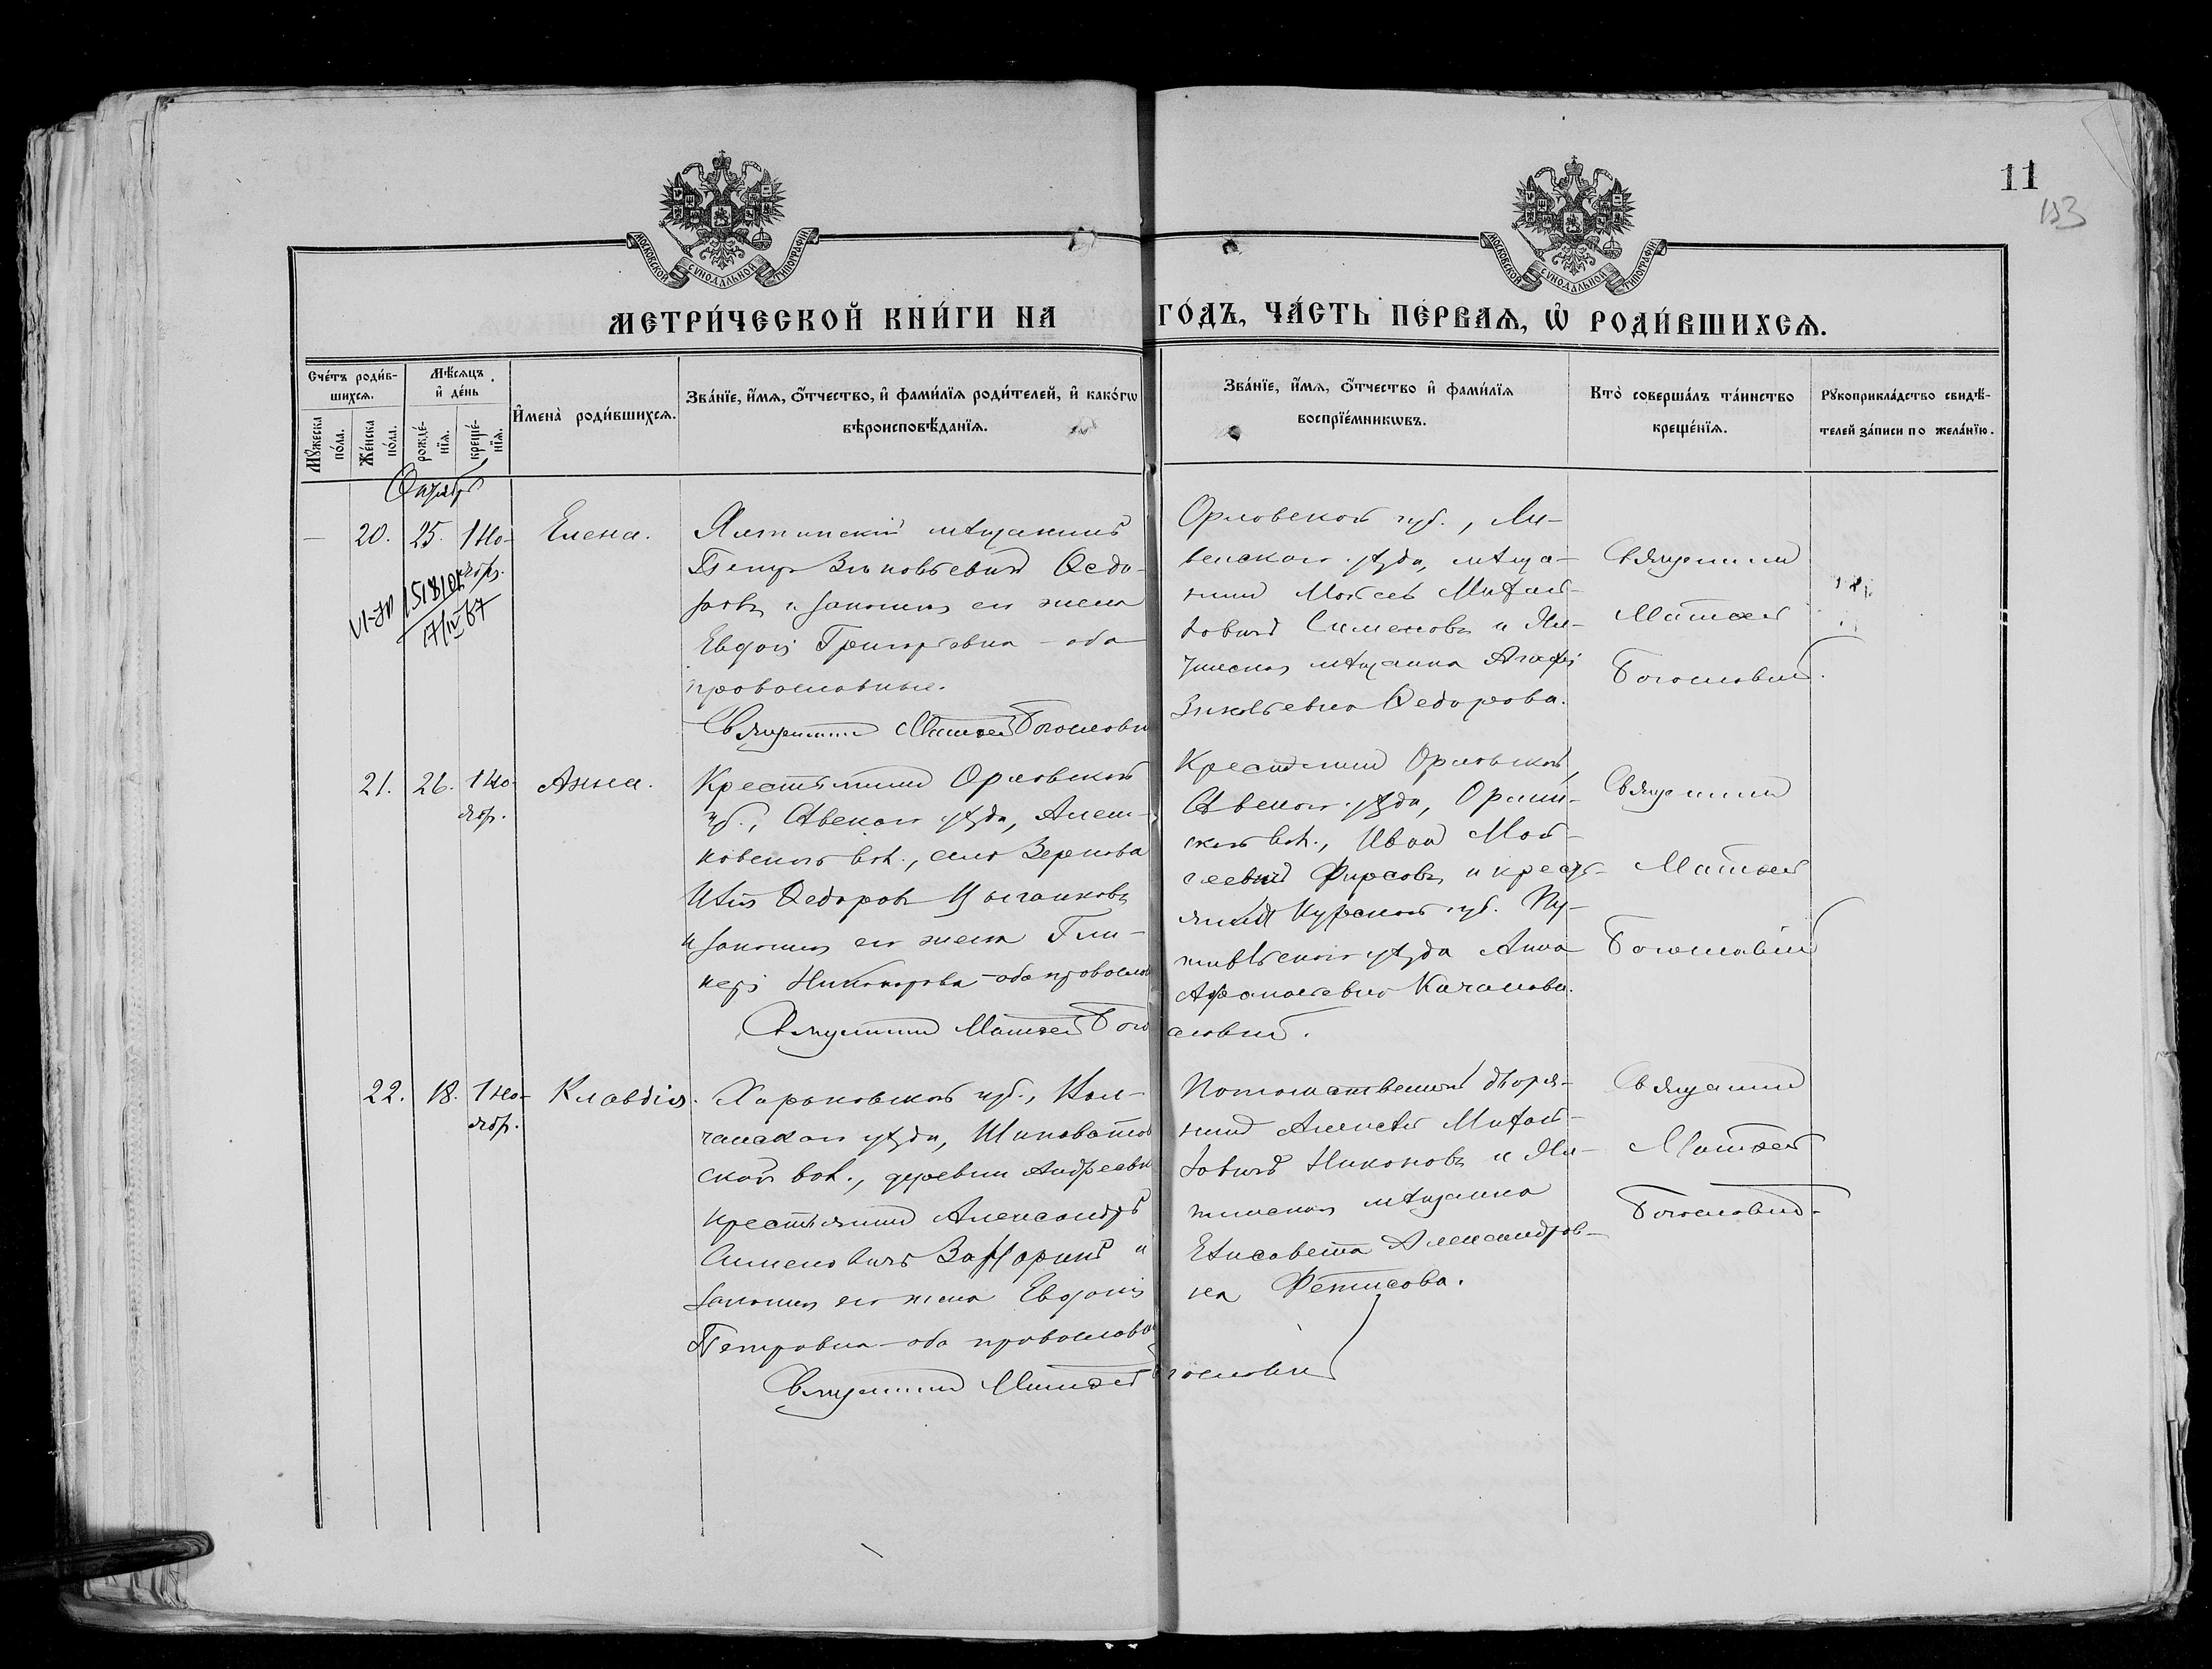 11
193
МОСКОВСКОЙ СУНОДАЛЬНОЙ ТИПОГРАФІИ
МОСКОВСКОЙ СУНОДАЛЬНОЙ ТИПОГРАФІИ
МЕТРИ́ЧЕСКОЙ КНИ́ГИ НА ГО́ДЪ, ЧА́СТЬ ПЕ́РВАѦ, Ѡ҆ РОДИ́ВШИХСѦ.
Сче́тъ роди́в-
шихсѧ.
Мꙋ́жеска по́ла.
Же́нска по́ла.
Мѣ́сѧцъ
и҆ де́нь
рожде́-нїѧ.
креще́-нїѧ.
И҆мена̀ роди́вшихсѧ.
Зва́нїе, и҆́мѧ, ѻ҆́тчество, и҆ фами́лїѧ роди́телей, и҆ како́гѡ
вѣроисповѣ́данїѧ.
Зва́нїе, и҆́мѧ, ѻ҆́тчество и҆ фами́лїѧ
воспрїе́мникѡвъ.
Кто̀ соверша́лъ та́инство
креще́нїѧ.
Рꙋкоприкла́дство свидѣ́-
телей за́писи по жела́нїю.
Октябрь
— 20. 25. 1 Но-
ябр.
Елена.
Ялтинскій мѣщанинъ
Петръ Зиновьевичъ Федо-
ровъ и законная его жена
Евдокія Григорьевна – оба
православные.
Священникъ Матвей Богословскій
Орловской губ., Ли-
венскаго уѣзда, мѣща-
нинъ Моисей Михай-
ловичъ Симоновъ и Ял-
тинская мѣщанка Агафія
Зиновьевна Федорова.
Священникъ
Матвей
Богословскій.
VI-ЯР 151810
17/IV 67
21. 26. 1 Но-
ябр.
Анна.
Крестьянинъ Орловской
губ., Сѣвскаго уѣзда, Алеш-
ковской вол., села Зернова
Федоровъ Цыганковъ
и законная его жена Гли-
керія Никанорова – оба православ
Священникъ Матвей Богословскій.
Крестьянинъ Орловской,
Сѣвскаго уѣзда,
ской вол., Иванъ Мои-
сеевичъ Фирсовъ и кресть-
Курской губ. Пу-
тивльскаго уѣзда Анна
Афанасьевна Качанова.
Священникъ
Матвей
Богословскій
22. 18. 1 Но-
ябр.
Клавдія.
Харьковской губ., Вол-
чанскаго уѣзда, Шиповатов
ской вол., деревни Андреевки
крестьянинъ Александръ
Симеоновичъ и
законная его жена Евдокія
Петровна – оба православн
Священникъ Матвей Богословскій
Потомственный дворя-
нинъ Алексѣй Михай-
ловичъ Никоновъ и Ял-
тинская мѣщанка
Елисавета Александров-
на Фетисова.
Священникъ
Матвей
Богословскій.